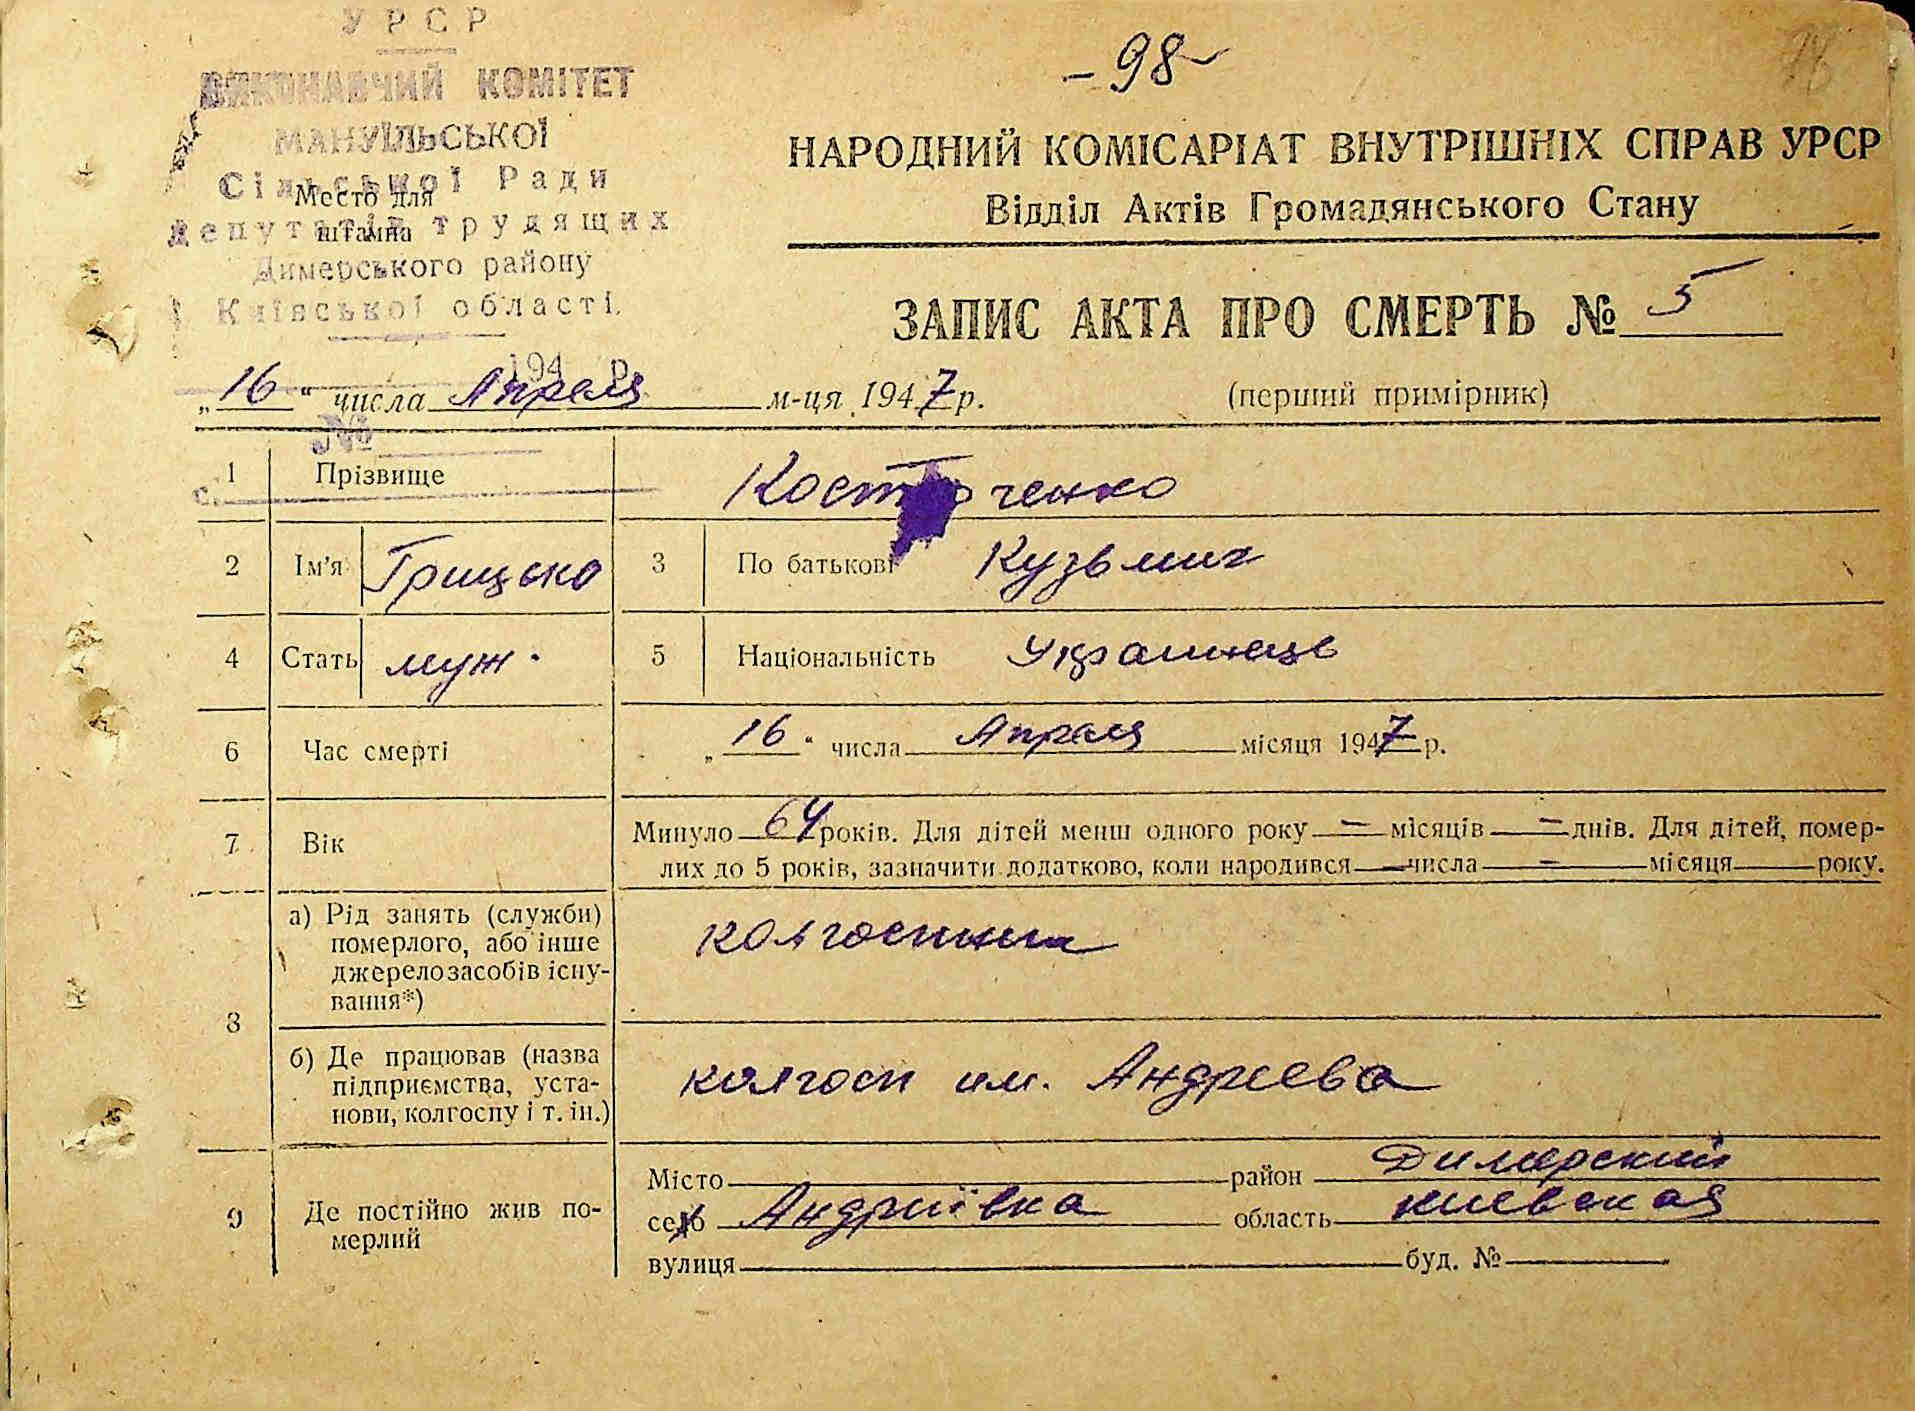 УРСР
ВИКОНАВЧИЙ КОМІТЕТ
МАНУЇЛЬСЬКОЇ
Сільської Ради
депутатів трудящих
Димерського району
Київської області.
194 р.
№
с.
Место для
штампа
-98-
НАРОДНИЙ КОМІСАРІАТ ВНУТРІШНІХ СПРАВ УРСР
Відділ Актів Громадянського Стану
ЗАПИС АКТА ПРО СМЕРТЬ № 5
„16“ числа Апреля м-ця 1947 р. (перший примірник)
1 Прізвище
2 Ім'я Грицько 3 По батькові Кузьмич
4 Стать муж. 5 Національність Украинець
6 Час смерті „16“ числа Апреля місяця 1947 р.
7 Вік Минуло 64 років. Для дітей менш одного року — місяців — днів. Для дітей, помер-
лих до 5 років, зазначити додатково, коли народився — числа — місяця року.
8 а) Рід занять (служби)
померлого, або інше
джерело засобів існу-
вання*)
колгоспник
б) Де працював (назва
підприємства, уста-
нови, колгоспу і т. ін.)
колгосп им. Андреева
9 Де постійно жив по-
мерлий
Місто район Димерский
село Андриївка область киевская
вулиця буд. №